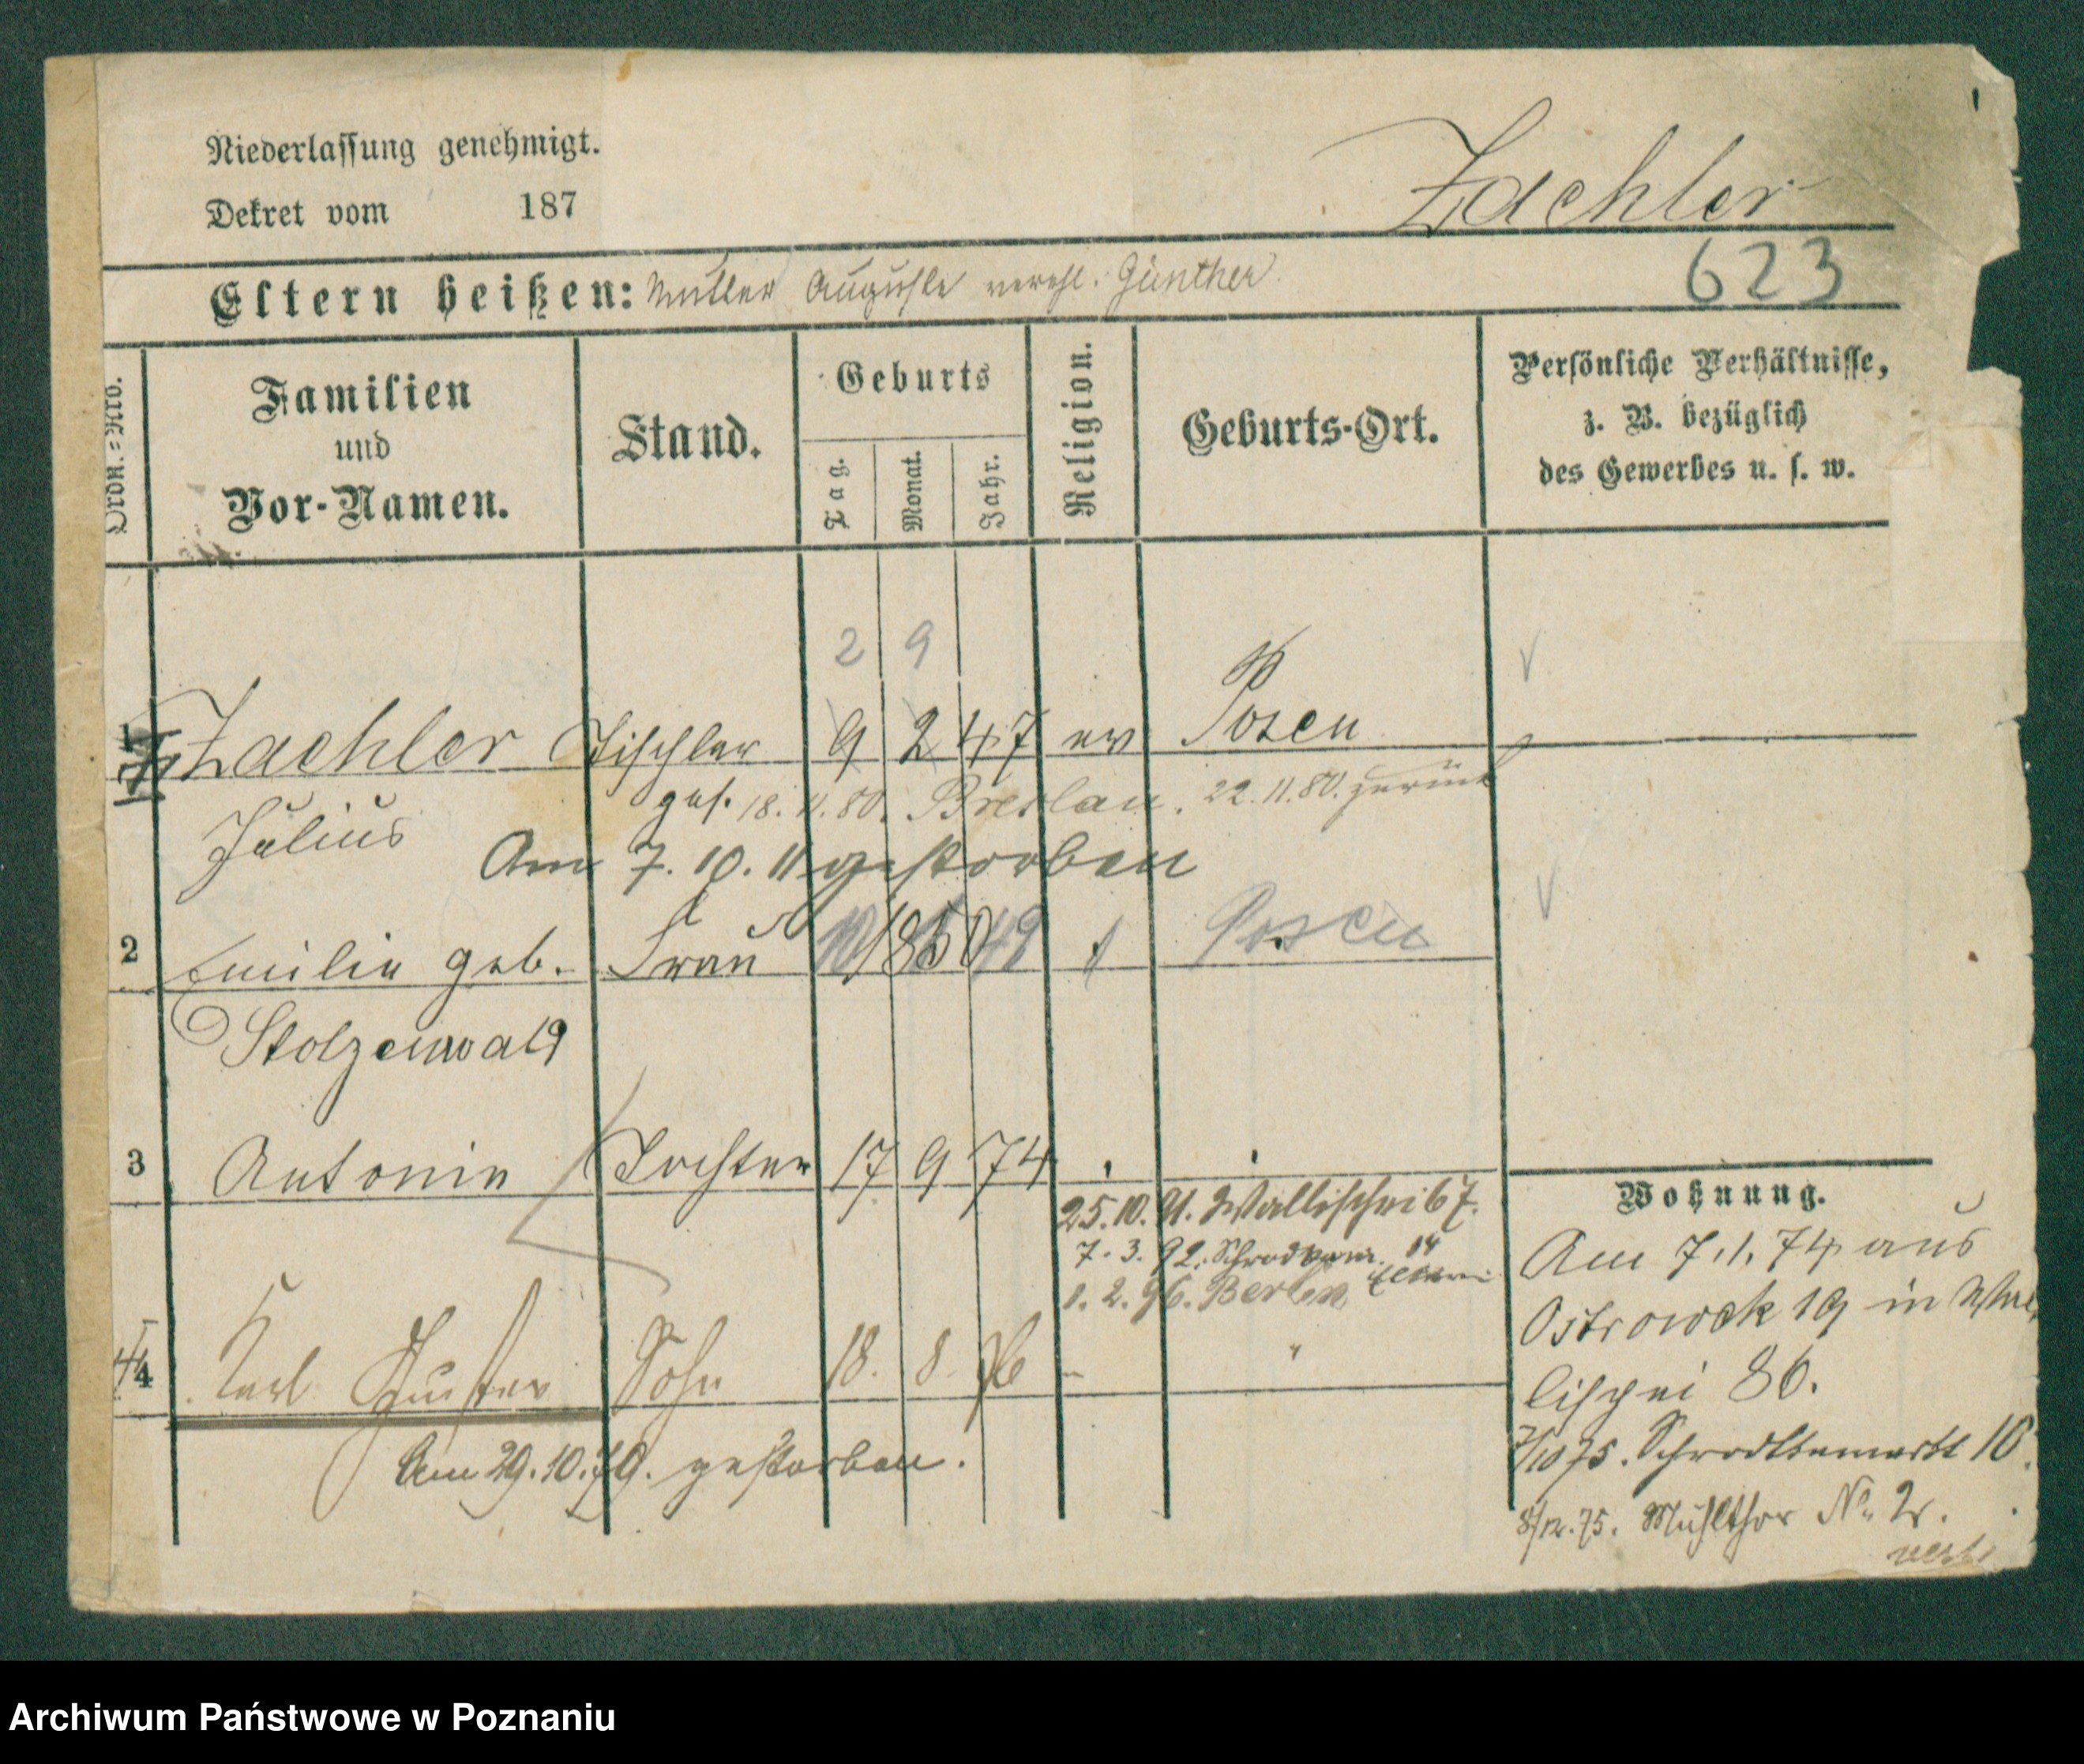 Niederlassung genehmigt.
Dekret vom 187
Zachler
Eltern heißen: Mutter Auguste verehl. Günther.
623
Ordn.=Nro.
Familien
und
Vor-Namen.
Stand.
Geburts
Tag.
Monat.
Jahr.
Religion.
Geburts-Ort.
Persönliche Verhältnisse,
z. B. bezüglich
des Gewerbes u. s. w.
2 9
1 Zachler Tischler 9 2 47 ev Posen
Julius
18. 11. 80. Breslau. 22. 11. 80. zurück
Am 7. 10. 11 gestorben
2 Emilie geb. Frau 1850 49 Posen
Stolzenwald
3 Antonie Tochter 17 9 74
25. 10. 91. Wallischei 67.
7. 3. 92. 14
1. 2. 96. Berlin
4 Karl Gustav Sohn 18. 8. 76 - "
Am 29. 10. 79. gestorben.
Wohnung.
Am 7. 1. 74 aus
Ostrowek 19 in Wal
lischei 86.
7/10 75. Schrodkamarkt 10.
8/12. 75. Mühlthor No 2.
Archiwum Państwowe w Poznaniu